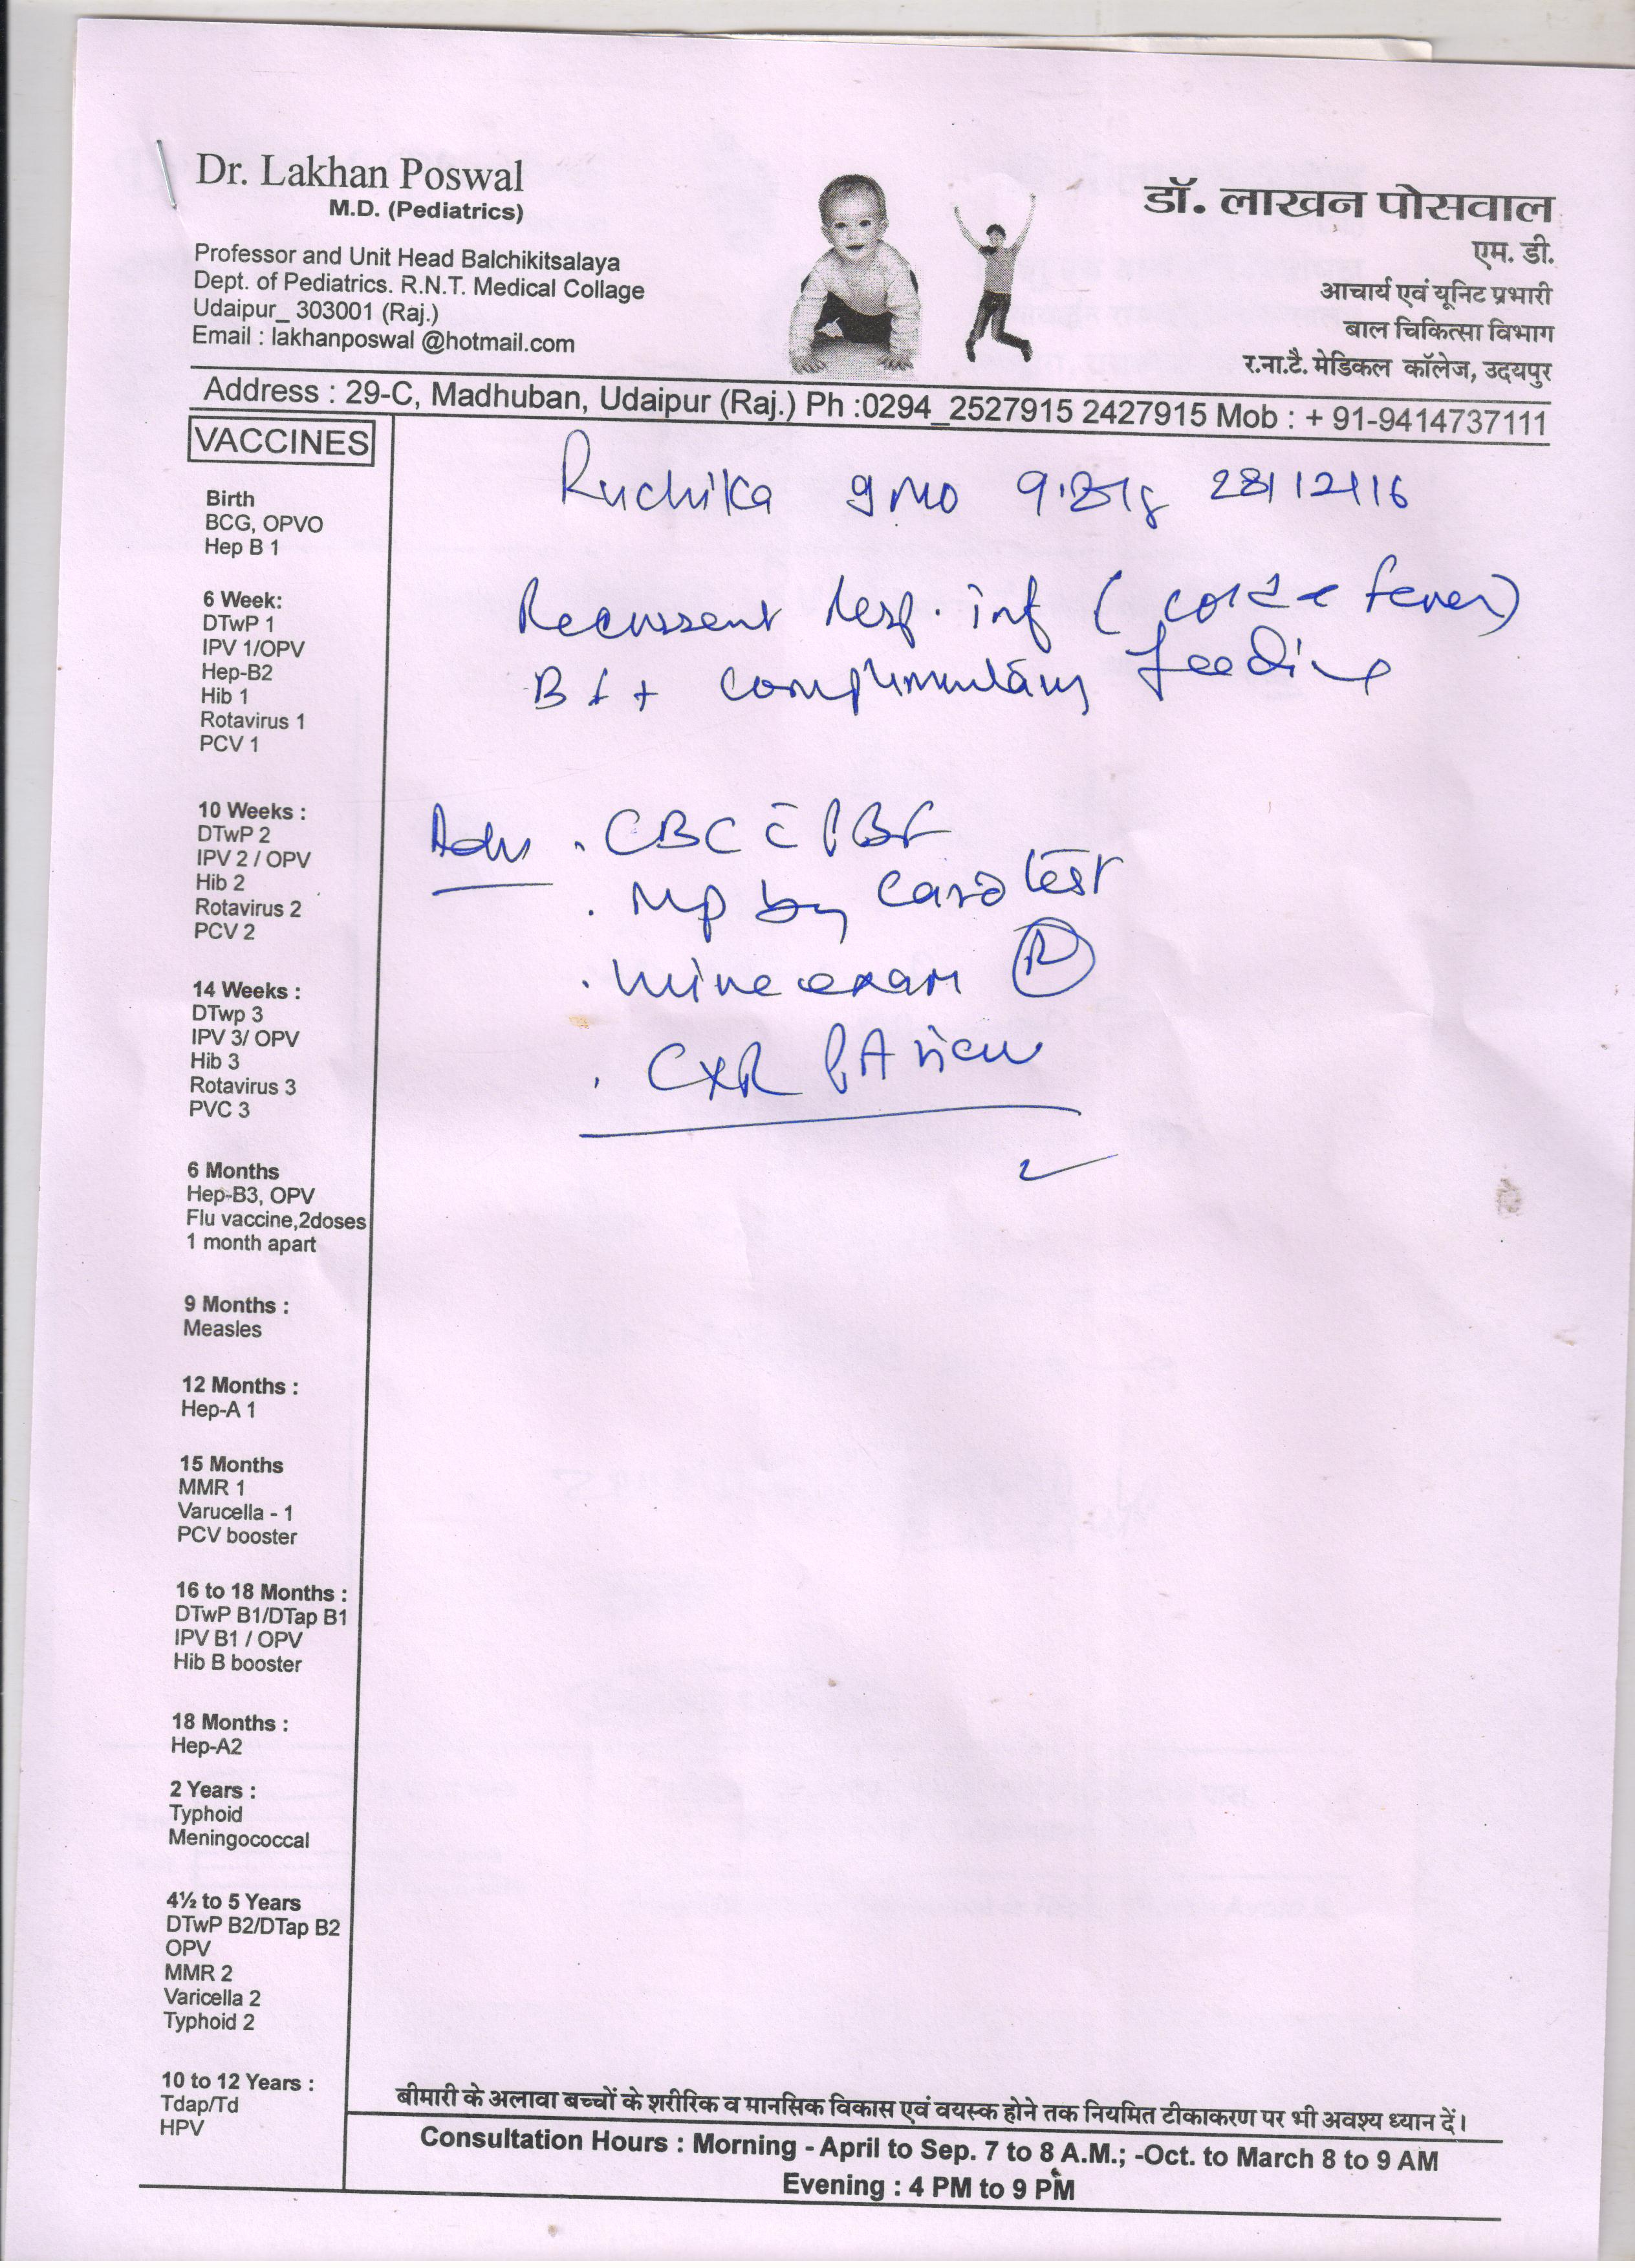 Dr. Lakhan Poswal
M.D. (Pediatrics)
Professor and Unit Head Balchikitsalaya
Dept. of Pediatrics. R.N.T. Medical Collage
Udaipur_ 303001 (Raj.)
Email : lakhanposwal @hotmail.com
डॉ. लाखन पोसवाल
एम. डी.
आचार्य एवं यूनिट प्रभारी
बाल चिकित्सा विभाग
र.ना.टै. मेडिकल कॉलेज, उदयपुर
Address : 29-C, Madhuban, Udaipur (Raj.) Ph :0294_2527915 2427915 Mob : + 91-9414737111
VACCINES
Birth
BCG, OPVO
Hep B 1
6 Week:
DTwP 1
IPV 1/OPV
Hep-B2
Hib 1
Rotavirus 1
PCV 1
10 Weeks :
DTwP 2
IPV 2 / OPV
Hib 2
Rotavirus 2
PCV 2
14 Weeks :
DTwp 3
IPV 3/ OPV
Hib 3
Rotavirus 3
PVC 3
6 Months
Hep-B3, OPV
Flu vaccine,2doses
1 month apart
9 Months :
Measles
12 Months :
Hep-A 1
15 Months
MMR 1
Varucella - 1
PCV booster
16 to 18 Months :
DTwP B1/DTap B1
IPV B1 / OPV
Hib B booster
18 Months :
Hep-A2
2 Years :
Typhoid
Meningococcal
4½ to 5 Years
DTwP B2/DTap B2
OPV
MMR 2
Varicella 2
Typhoid 2
10 to 12 Years :
Tdap/Td
HPV
Ruchika 9 mo 28/12/16
Recurrent resp. inf ( cold c fever)
Bf + complimentary feeding
Adv . CBC c̄ PBF
. MP by Card test
. Urine exam (R)
. CXR PA view
बीमारी के अलावा बच्चों के शरीरिक व मानसिक विकास एवं वयस्क होने तक नियमित टीकाकरण पर भी अवश्य ध्यान दें।
Consultation Hours : Morning - April to Sep. 7 to 8 A.M.; -Oct. to March 8 to 9 AM
Evening : 4 PM to 9 PM